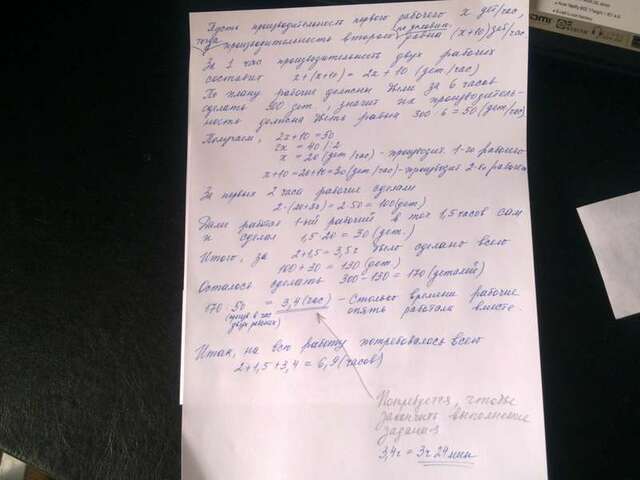 Пусть производительность первого рабочего x дет/час,
тогда производительность второго по условию равна (x+10) дет/час
За 1 час производительность двух рабочих
составит x+(x+10) = 2x+10 (дет./час)
По плану рабочие должны были за 6 часов
сделать 300 дет., значит их производитель-
ность должна быть равна 300:6=50 (дет/час)
Получаем, 2x+10=50
2x = 40 |:2
x = 20 (дет./час) - производит. 1-го рабочего
x+10=20+10=30 (дет/час) - производит 2-го рабочего
За первых 2 часа рабочие сделали
2·(20+30) = 2·50 = 100 (дет)
Далее работал 1-ый рабочий в теч 1,5 часов сам
и сделал 1,5·20 = 30 (дет.)
Итого, за 2+1,5=3,5ч было сделано всего
100+30 = 130 (дет.)
Осталось сделать 300-130 = 170 (деталей)
170:50 = 3,4 (час) - Столько времени рабочие
опять работали вместе.
двух рабочих)
Итак, на всю работу потребовалось всего
2+1,5+3,4 = 6,9 (часов)
Потребуется, чтобы
закончить выполнение
задания
3,4ч = 3ч 24мин
HDMI